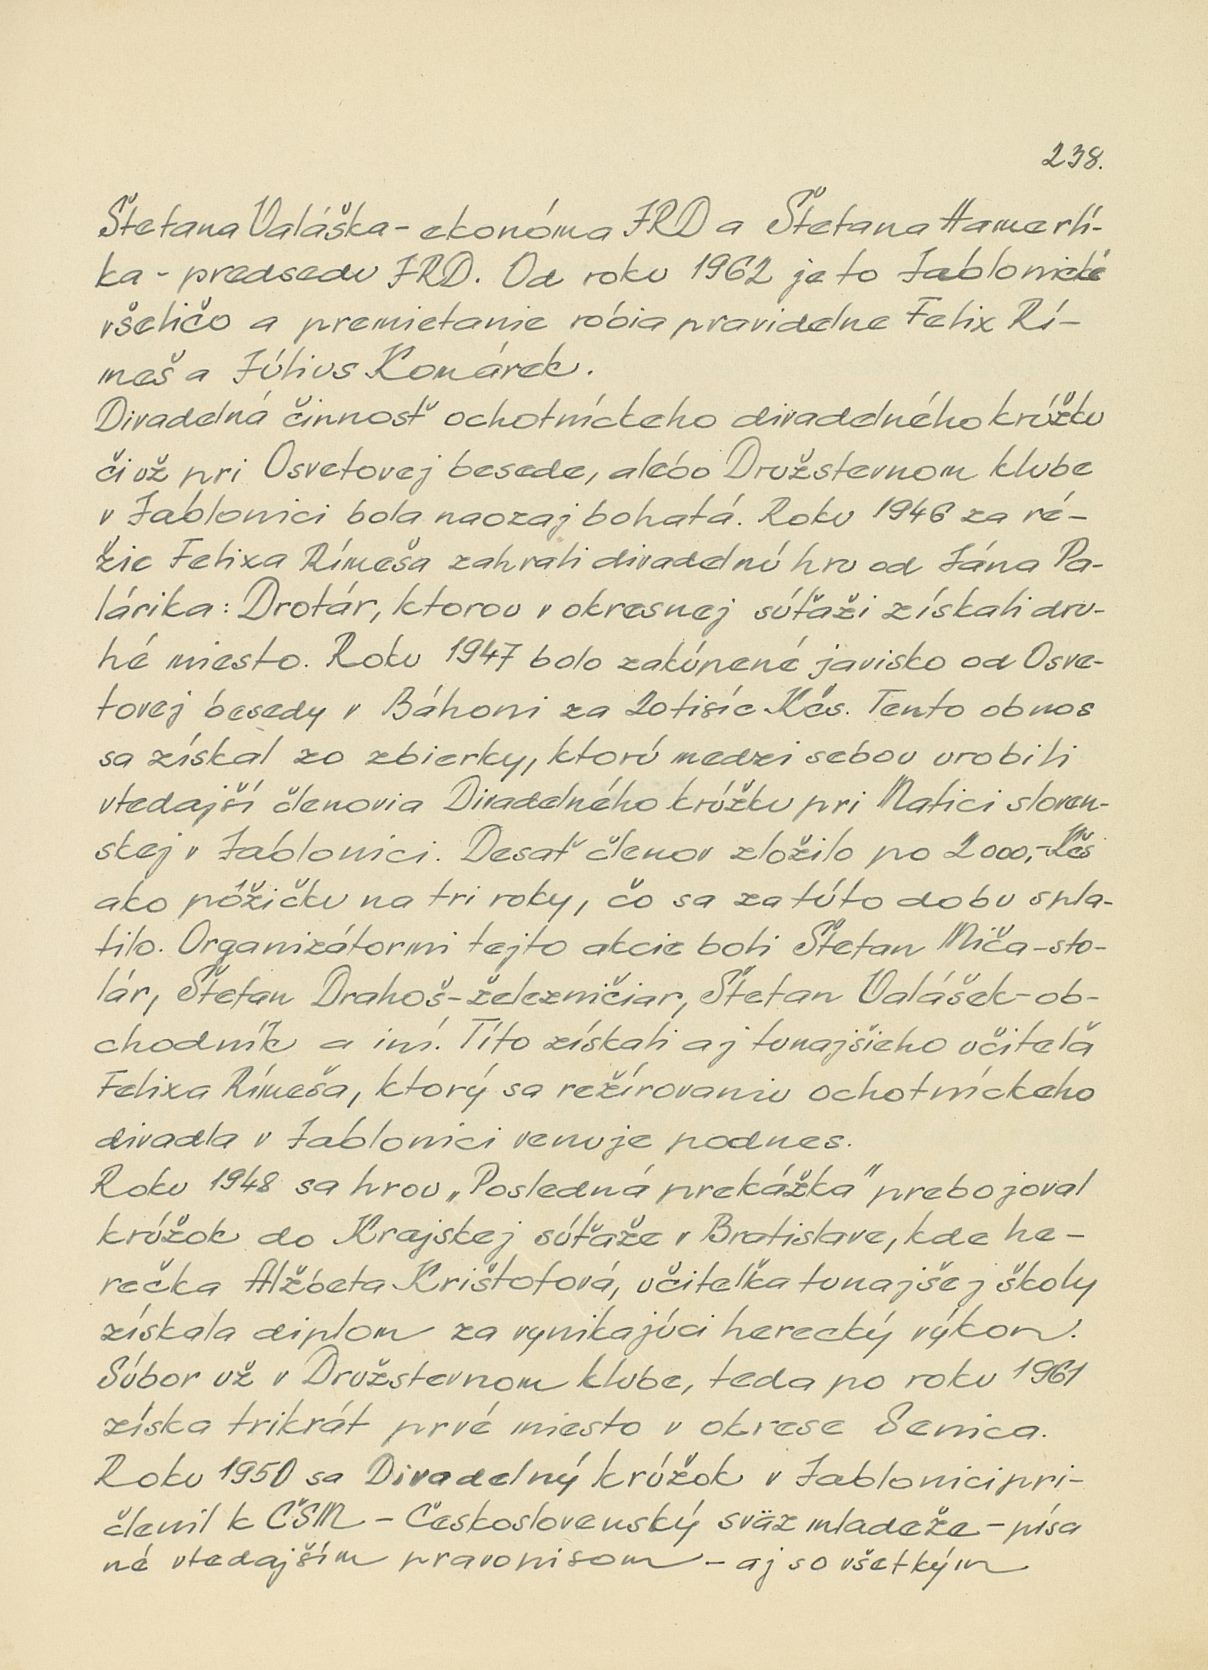 238.
Štefana Valáška - ekonóma JRD a Štefana Hamerlí-
ka - predsedu JRD. Od roku 1962 je to Jablonické
všeličo a premietanie robia pravidelne Felix Rí-
meš a Július Komárek.
Divadelná činnosť ochotníckeho divadelného krúžku
či už pri Osvetovej besede, alebo Družstevnom klube
v Jablonici bola naozaj bohatá. Roku 1946 za ré-
žie Felixa Rímeša zahrali divadelnú hru od Jána Pa-
lárika: Drotár, ktorou v okresnej súťaži získali dru-
hé miesto. Roku 1947 bolo zakúpené javisko od Osve-
tovej besedy v Báhoni za 20 tisíc Kčs. Tento obnos
sa získal zo zbierky, ktorú medzi sebou urobili
vtedajší členovia Divadelného krúžku pri Matici sloven-
skej v Jablonici. Desať členov zložilo po 2000,-Kčs
ako pôžičku na tri roky, čo sa za túto dobu spla-
tilo. Organizátormi tejto akcie boli Štefan Miča - sto-
lár, Štefan Drahoš - železničiar, Štefan Valášek - ob-
chodník a iní. Títo získali aj tunajšieho učiteľa
Felixa Rímeša, ktorý sa režírovaniu ochotníckeho
divadla v Jablonici venuje podnes.
Roku 1948 sa hrou „Posledná prekážka" prebojoval
krúžok do Krajskej súťaže v Bratislave, kde he-
rečka Alžbeta Krištofová, učiteľka tunajšej školy
získala diplom za vynikajúci herecký výkon.
Súbor už v Družstevnom klube, teda po roku 1961
získa trikrát prvé miesto v okrese Senica.
Roku 1950 sa Divadelný krúžok v Jablonici pri-
členil k ČSM - Československý sväz mladeže - písa
né vtedajším pravopisom - aj so všetkým